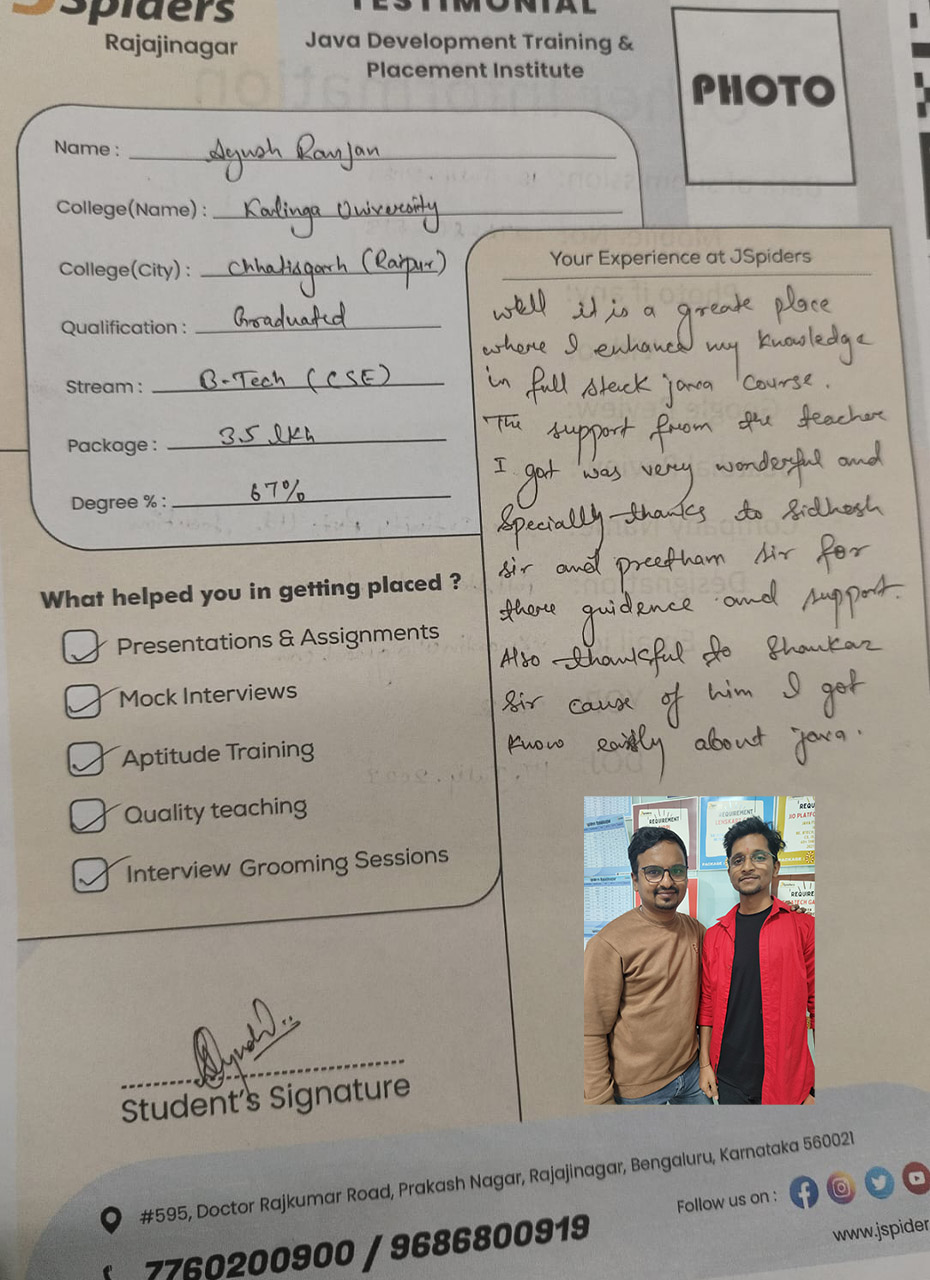 JSpiders
Rajajinagar
TESTIMONIAL
Java Development Training &
Placement Institute
PHOTO
Name : Ayush Ranjan
College(Name) : Kalinga University
College(City) : Chhatisgarh (Raipur)
Qualification : Graduated
Stream : B-Tech (CSE)
Package : 3.5 lkh
Degree % : 67%
Your Experience at JSpiders
well it is a greate place
where I enhance my knowledge
in full stack java course.
The support from the teacher
I got was very wonderful and
Specially thanks to Sidhesh
sir and preetham sir for
there guidence and support.
Also thankful to Shankar
Sir cause of him I got
know easily about java.
What helped you in getting placed ?
Presentations & Assignments
Mock Interviews
Aptitude Training
Quality teaching
Interview Grooming Sessions
REQUIREMENT
REQUIREMENT
JIO PLATFO
Ayush
Student's Signature
#595, Doctor Rajkumar Road, Prakash Nagar, Rajajinagar, Bengaluru, Karnataka 560021
7760200900 / 9686800919
Follow us on :
www.jspider